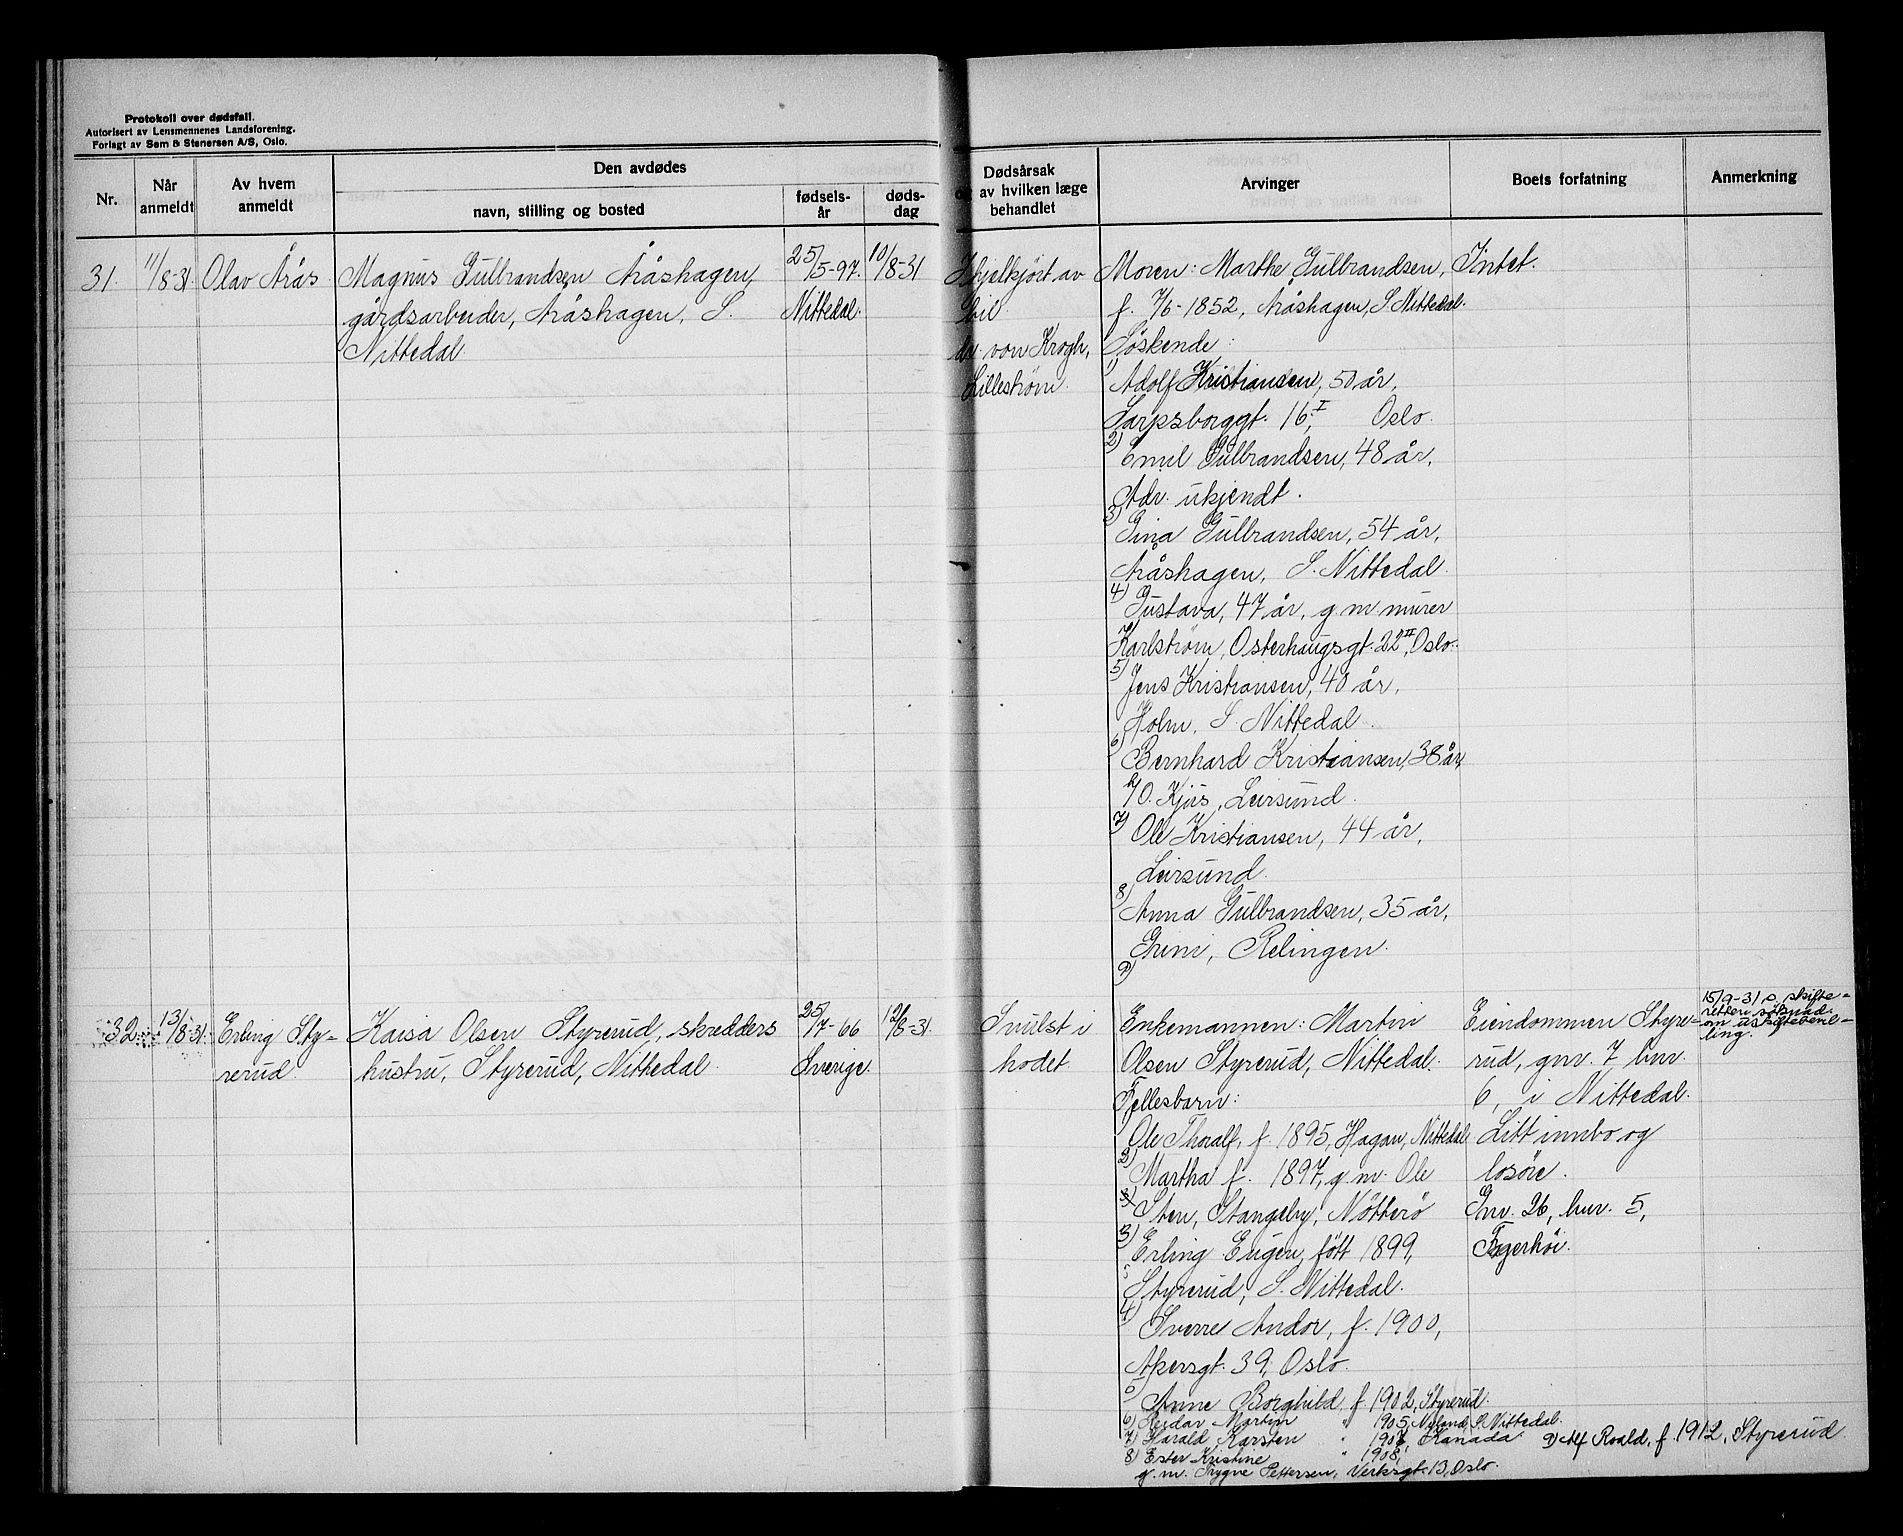 Protokoll over dødsfall.
Autorisert av Lensmennenes Landsforening.
Forlagt av Sem & Stenersen A/S, Oslo.
Nr.
Når anmeldt
Av hvem anmeldt
Den avdødes
navn, stilling og bosted
fødsels-
år
døds-
dag
Dødsårsak
og av hvilken læge
behandlet
Arvinger
Boets forfatning
Anmerkning
31. 11/8-31 Olav Årås Magnus Gulbrandsen Aråshagen, 25/5-97. 10/8-31
gårdsarbeider, Aråshagen, S. Nittedal.
Nittedal
Ihjelkjørt av
bil.
dr. von Krogh,
Lillestrøm.
Moren: Marthe Gulbrandsen, Intet.
f. 7/6-1852, Aråshagen, S. Nittedal.
Søskende:
1) Adolf Kristiansen, 50 år,
Sarpsborggt. 16, I Oslo.
2) Emil Gulbrandsen, 48 år,
Adr. ukjendt.
3) Gina Gulbrandsen, 54 år,
Aråshagen, S. Nittedal.
4) Gustava, 47 år, g.m. murer
Karlstrøm, Osterhaugsgt. 22 II, Oslo.
5) Jens Kristiansen, 40 år,
Holm, S. Nittedal.
6) Bernhard Kristiansen, 38 år,
Kjus, Leirsund.
7) Ole Kristiansen, 44 år,
Leirsund.
8) Anna Gulbrandsen, 35 år,
Grini, Relingen.
9)
32. 13/8-31. Erling Sty- Kaisa Olsen Styrerud, skredders 25/7-66 12/8-31.
rerud. hustru, Styrerud, Nittedal. Sverige.
Svulst i
hodet
Enkemannen: Martin
Olsen Styrerud, Nittedal.
Fellesbarn:
1) Ole Thoralf, f. 1895, Hagan, Nittedal
2) Martha f. 1897, g.m. Ole
3) Sten, Stangeby, Nötterö
3) Erling Eugen, född 1899,
Styrerud, S. Nittedal.
4) Sverre Andor, f. 1900,
Akersgt. 39, Oslo.
5) Anne Borghild, f. 1902, Styrerud.
6) Reidar Martin " 1905, Nyland, S. Nittedal.
7) Harald Karsten " 1907, Kanada
9) Alf Roald, f. 1912, Styrerud
8) Ester Kristine " 1908,
g.m. Trygve Pettersen, Verksgt. 13, Oslo.
Eiendommen Styre-
rud, gnr. 7, bnr.
6, i Nittedal.
Litt innbo og
losöre.
Gnr. 26, bnr. 5,
Fagerhöi.
15/9-31 s. skifte-
retten søknad
om uskiftebevil-
ling.